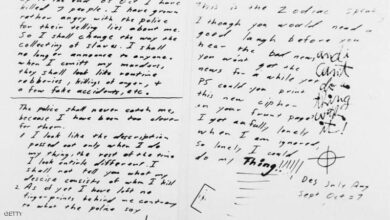 killed 5 people. I have grown
rather angry with the police
for their telling lies about me.
So I shall change the way the
collecting of slaves. I shall
no longer announce to anyone.
when I comitt my murders,
they shall look like routine
robberies, killings of anger, &
a few fake accidents, etc.
The police shall never catch me,
because I have been too clever
for them.
1 I look like the description
passed out only when I do
my thing, the rest of the time
I look entirle different. I
shall not tell you what my
descise consists of when I kill
2 As of yet I have left no
fingerprints behind me contrary
to what the police say
This is the Zodiac speaking
I though you would need a
good laugh before you
hear the bad news
you won't get the
news for a while yet
PS could you print
this new cipher
in your frunt page?
I get awfully lonely
when I am ignored,
so lonely I could
do my Thing!!!!!!
and i
cant
do a
thing
with
it!
Des July Aug
Sept Oct = 7
GETTY